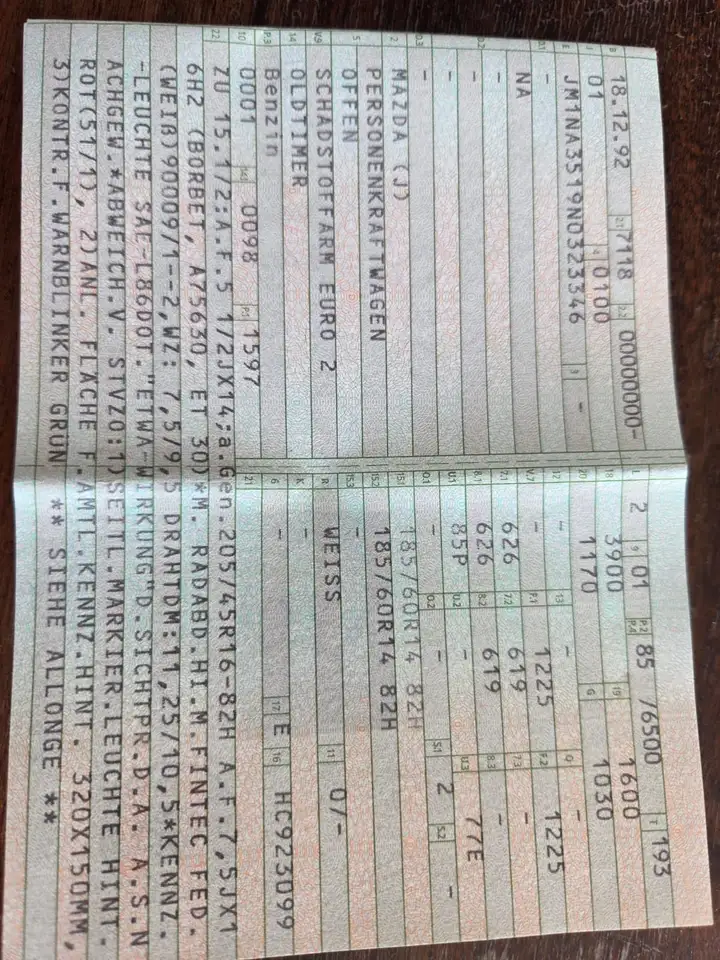 B 18.12.92 2.1 7118 2.2 00000000-
J 01 4 0100
E JM1NA3519N0323346 3 -
D.1 -
NA
D.2 -
-
D.3 -
2 MAZDA (J)
PERSONENKRAFTWAGEN
5 OFFEN
V.9 SCHADSTOFFARM EURO 2
14 OLDTIMER
P.3 Benzin
10 0001 14.1 0098 P.1 1597
L 2 9 01 P.2 P.4 85 /6500 T 193
18 3900 19 1600
20 1170 G 1030
12 - 13 - Q -
V.7 - F.1 1225 F.2 1225
7.1 626 7.2 619 7.3 -
8.1 626 8.2 619 8.3 -
U.1 85P U.2 - U.3 77E
O.1 - O.2 - S.1 2 S.2 -
15.1 185/60R14 82H
15.2 185/60R14 82H
15.3 -
R WEISS 11 0/-
K -
6 - 17 E 16 HC923099
21
22 ZU 15.1/2:A.F.5 1/2JX14;a.Gen.205/45R16-82H A.F.7,5JX1
6H2 (BORBET, A75630, ET 30)*M. RADABD.HI.M.FINTEC FED.
(WEIß)90009/1--2,WZ: 7,5/9,5 DRAHTDM:11,25/10,5*KENNZ.
-LEUCHTE SAE-L86DOT."ETWA-WIRKUNG"D.SICHTPR.D.A. A.S.N
ACHGEW.*ABWEICH.V. STVZO:1)SEITL.MARKIER.LEUCHTE HINT.
ROT(51/1), 2)ANL. FLÄCHE F.AMTL.KENNZ.HINT. 320X150MM,
3)KONTR.F.WARNBLINKER GRÜN ** SIEHE ALLONGE **